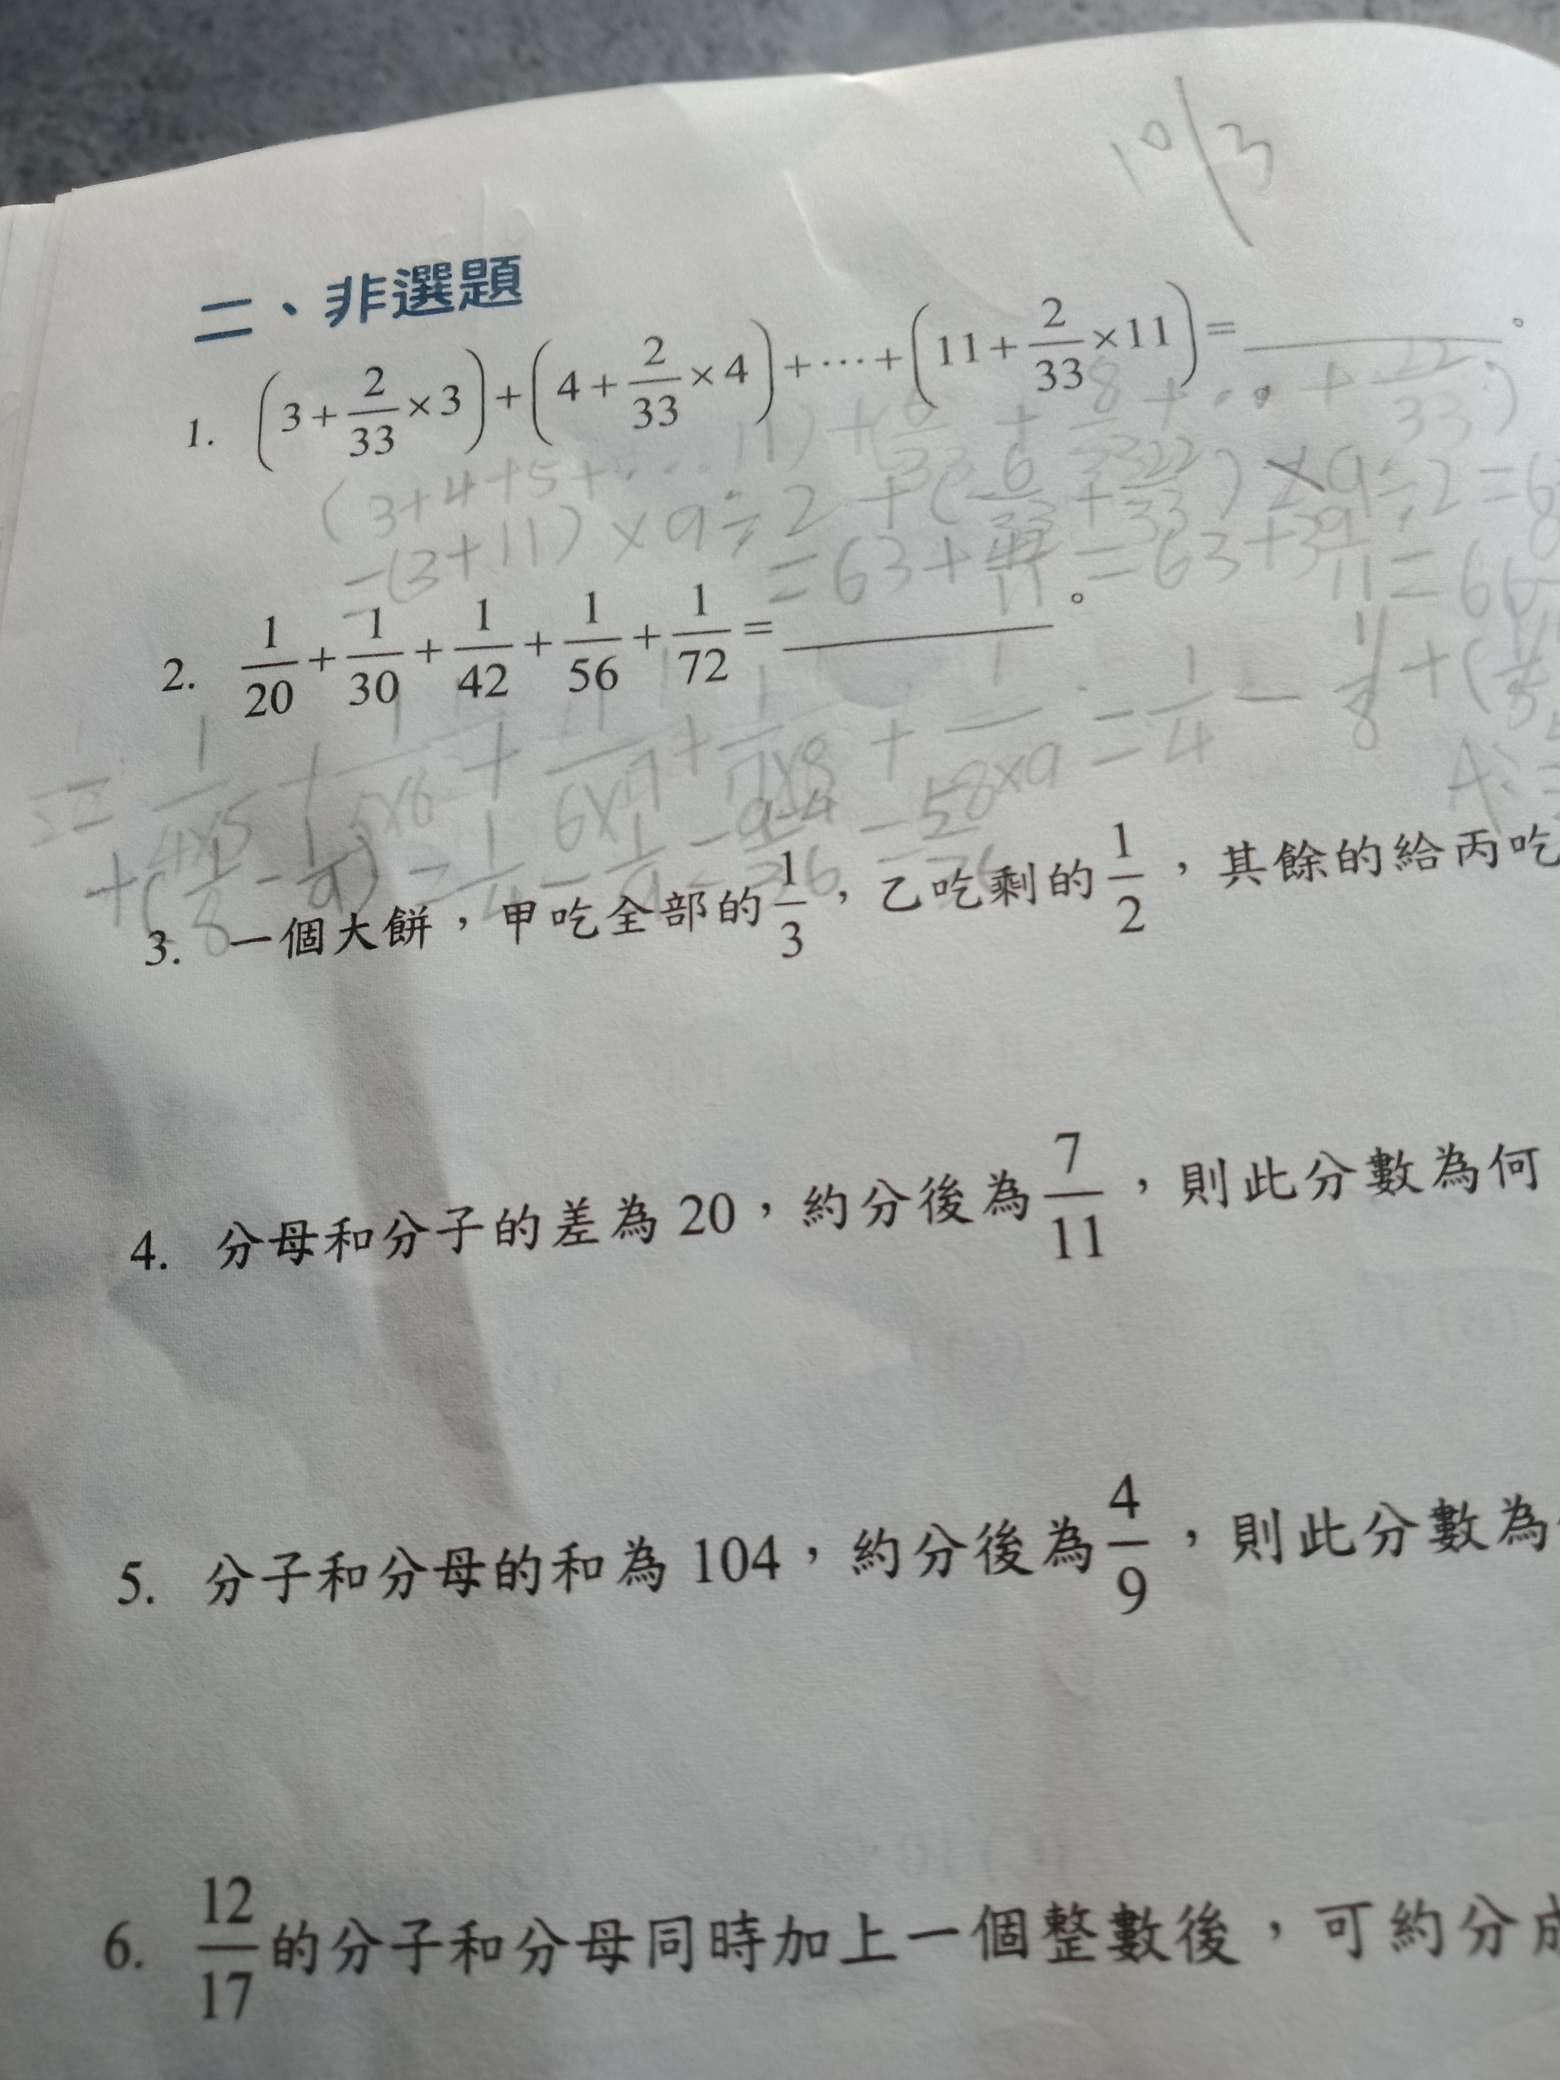 10/3
二、非選題
1. (3+2/33×3)+(4+2/33×4)+⋯+(11+2/33×11)=______。
(3+4+5+....11)+(6/33+8/33+...+22/33)
=(3+11)×9÷2+(6/33+22/33)×9÷2=6
=63+42/11=63+3 9/11=66
2. 1/20+1/30+1/42+1/56+1/72=______。
=1/4×5+1/5×6+1/6×7+1/7×8+1/8×9=1/4-1/
+(1/8-1/9)=1/4-1/9=9-4/36=5/36
3. 一個大餅，甲吃全部的1/3，乙吃剩的1/2，其餘的給丙吃
4. 分母和分子的差為20，約分後為7/11，則此分數為何
5. 分子和分母的和為104，約分後為4/9，則此分數為
6. 12/17的分子和分母同時加上一個整數後，可約分成